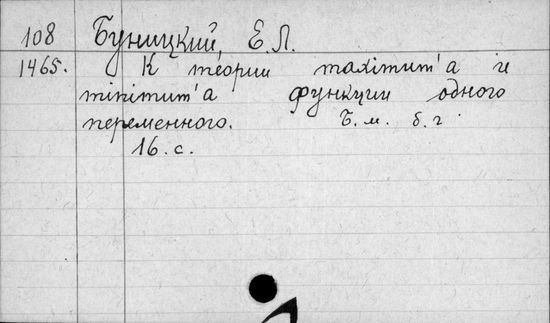 108 Буницкий, Е.Л.
1465. К теории maximum'a и
minimum'a функции одного
переменного. Б.м. б.г.
16.с.